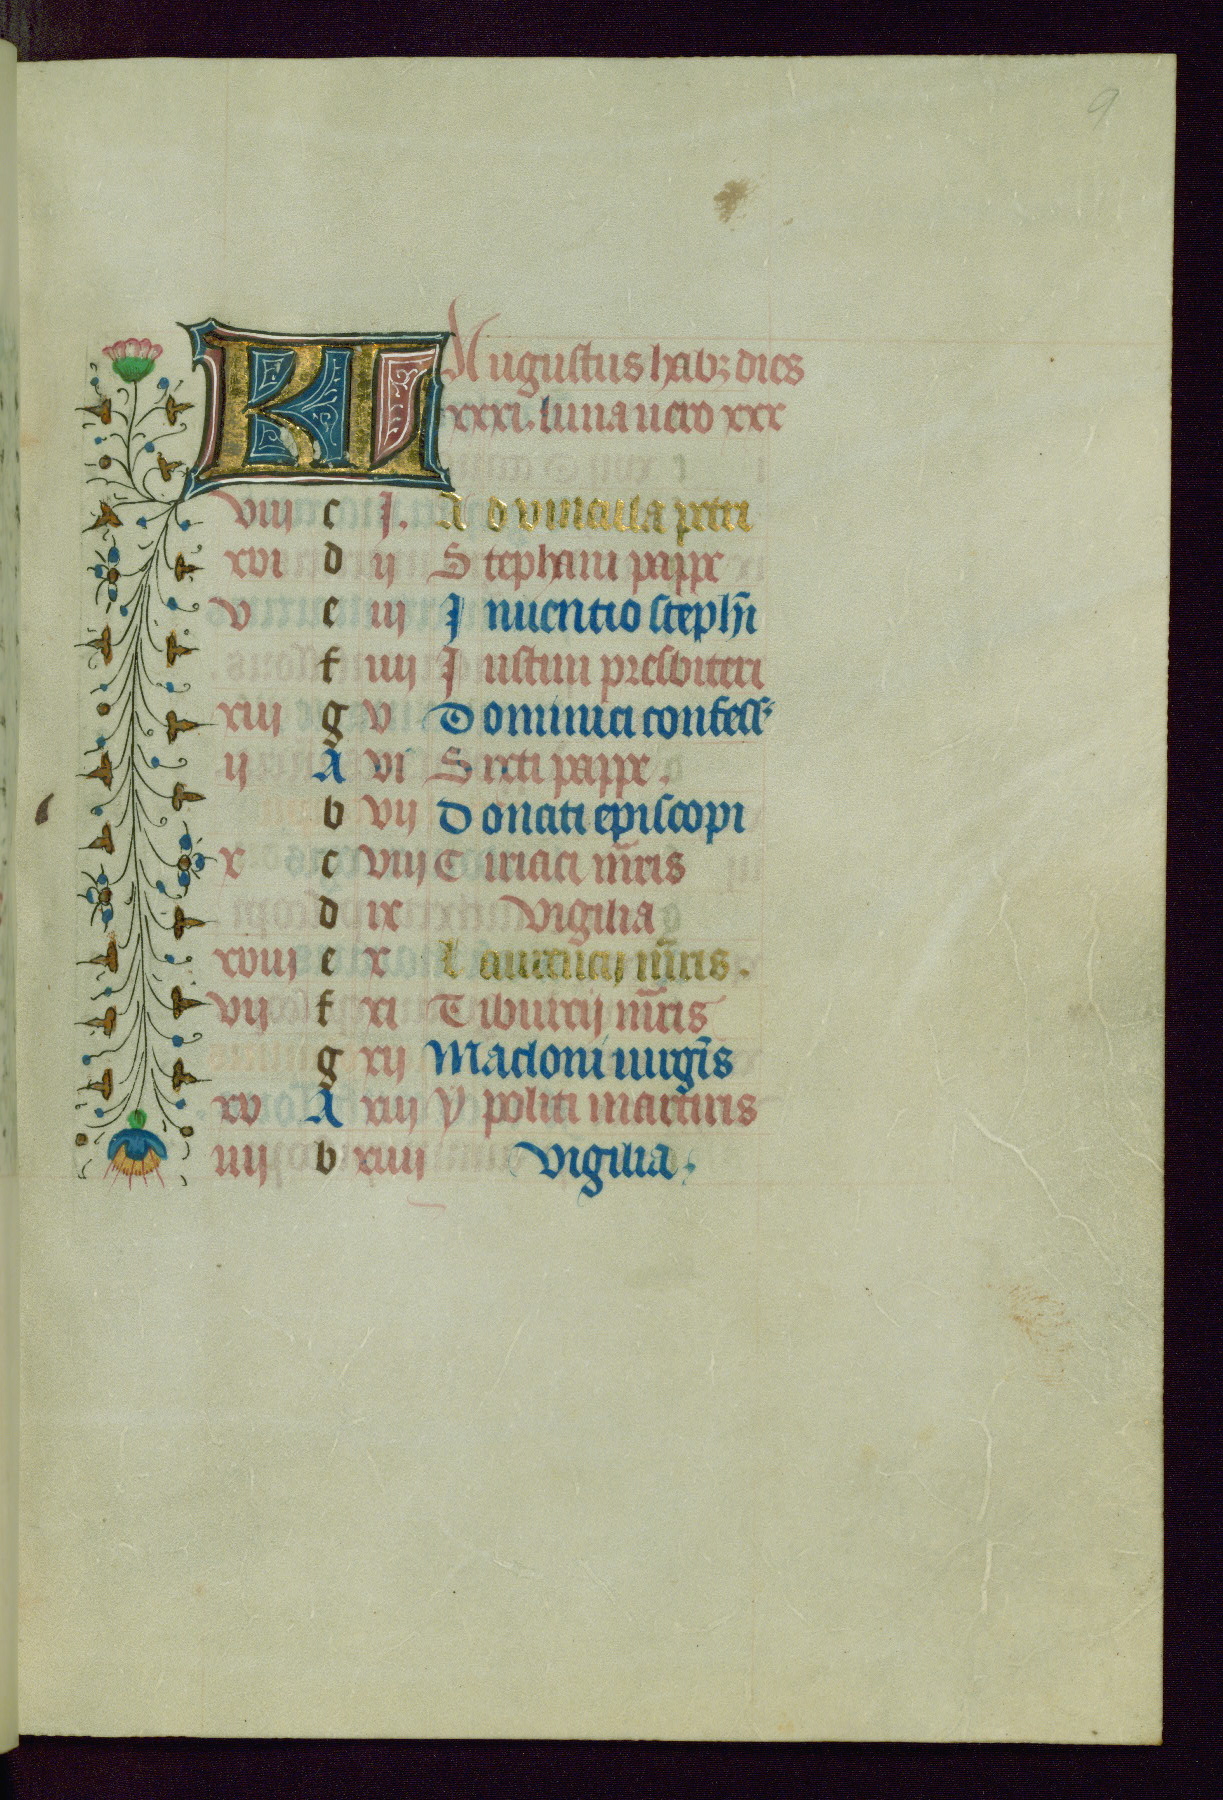 9
KL Augustus habꝫ dies
xxxi. luna uero xxx
viij c j. Ad vincula petri
xvi d ij Stephani pappe
v e iij Inuentio steph̄i
f iiij Justini presbiteri
xiij g v Dominici confess
ij A vi Sixti pappe.
b vij Donati episcopi
x c viij Ciriaci m̄ris
d ix Vigilia
xviij e x Laurencij m̄ris.
vij f xi Tiburcij m̄ris
g xij Macloni uirgīs
xv A xiij Ypoliti martiris
iiij b xiiij Vigilia.